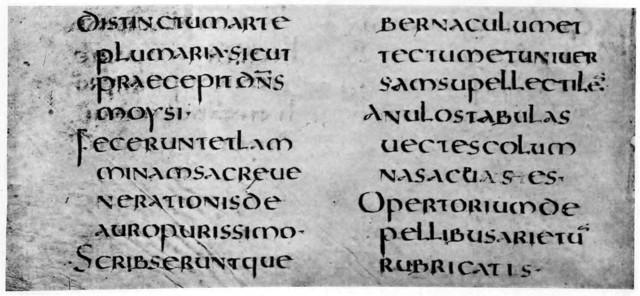 DISTINCTUMARTE
PLUMARIA·SICUT
PRAECEPIT DN̄S
MOYSI·
FECERUNTETLAM
MINAMSACREUE
NERATIONISDE
AUROPURISSIMO·
SCRIBSERUNTQUE
BERNACULUMET
TECTUMETUNIUER
SAMSUPELLECTILĒ
ANULOSTABULAS
UECTESCOLUM
NASAC
OPERTORIUMDE
PELLIBUSARIETŪ
RUBRICATIS·